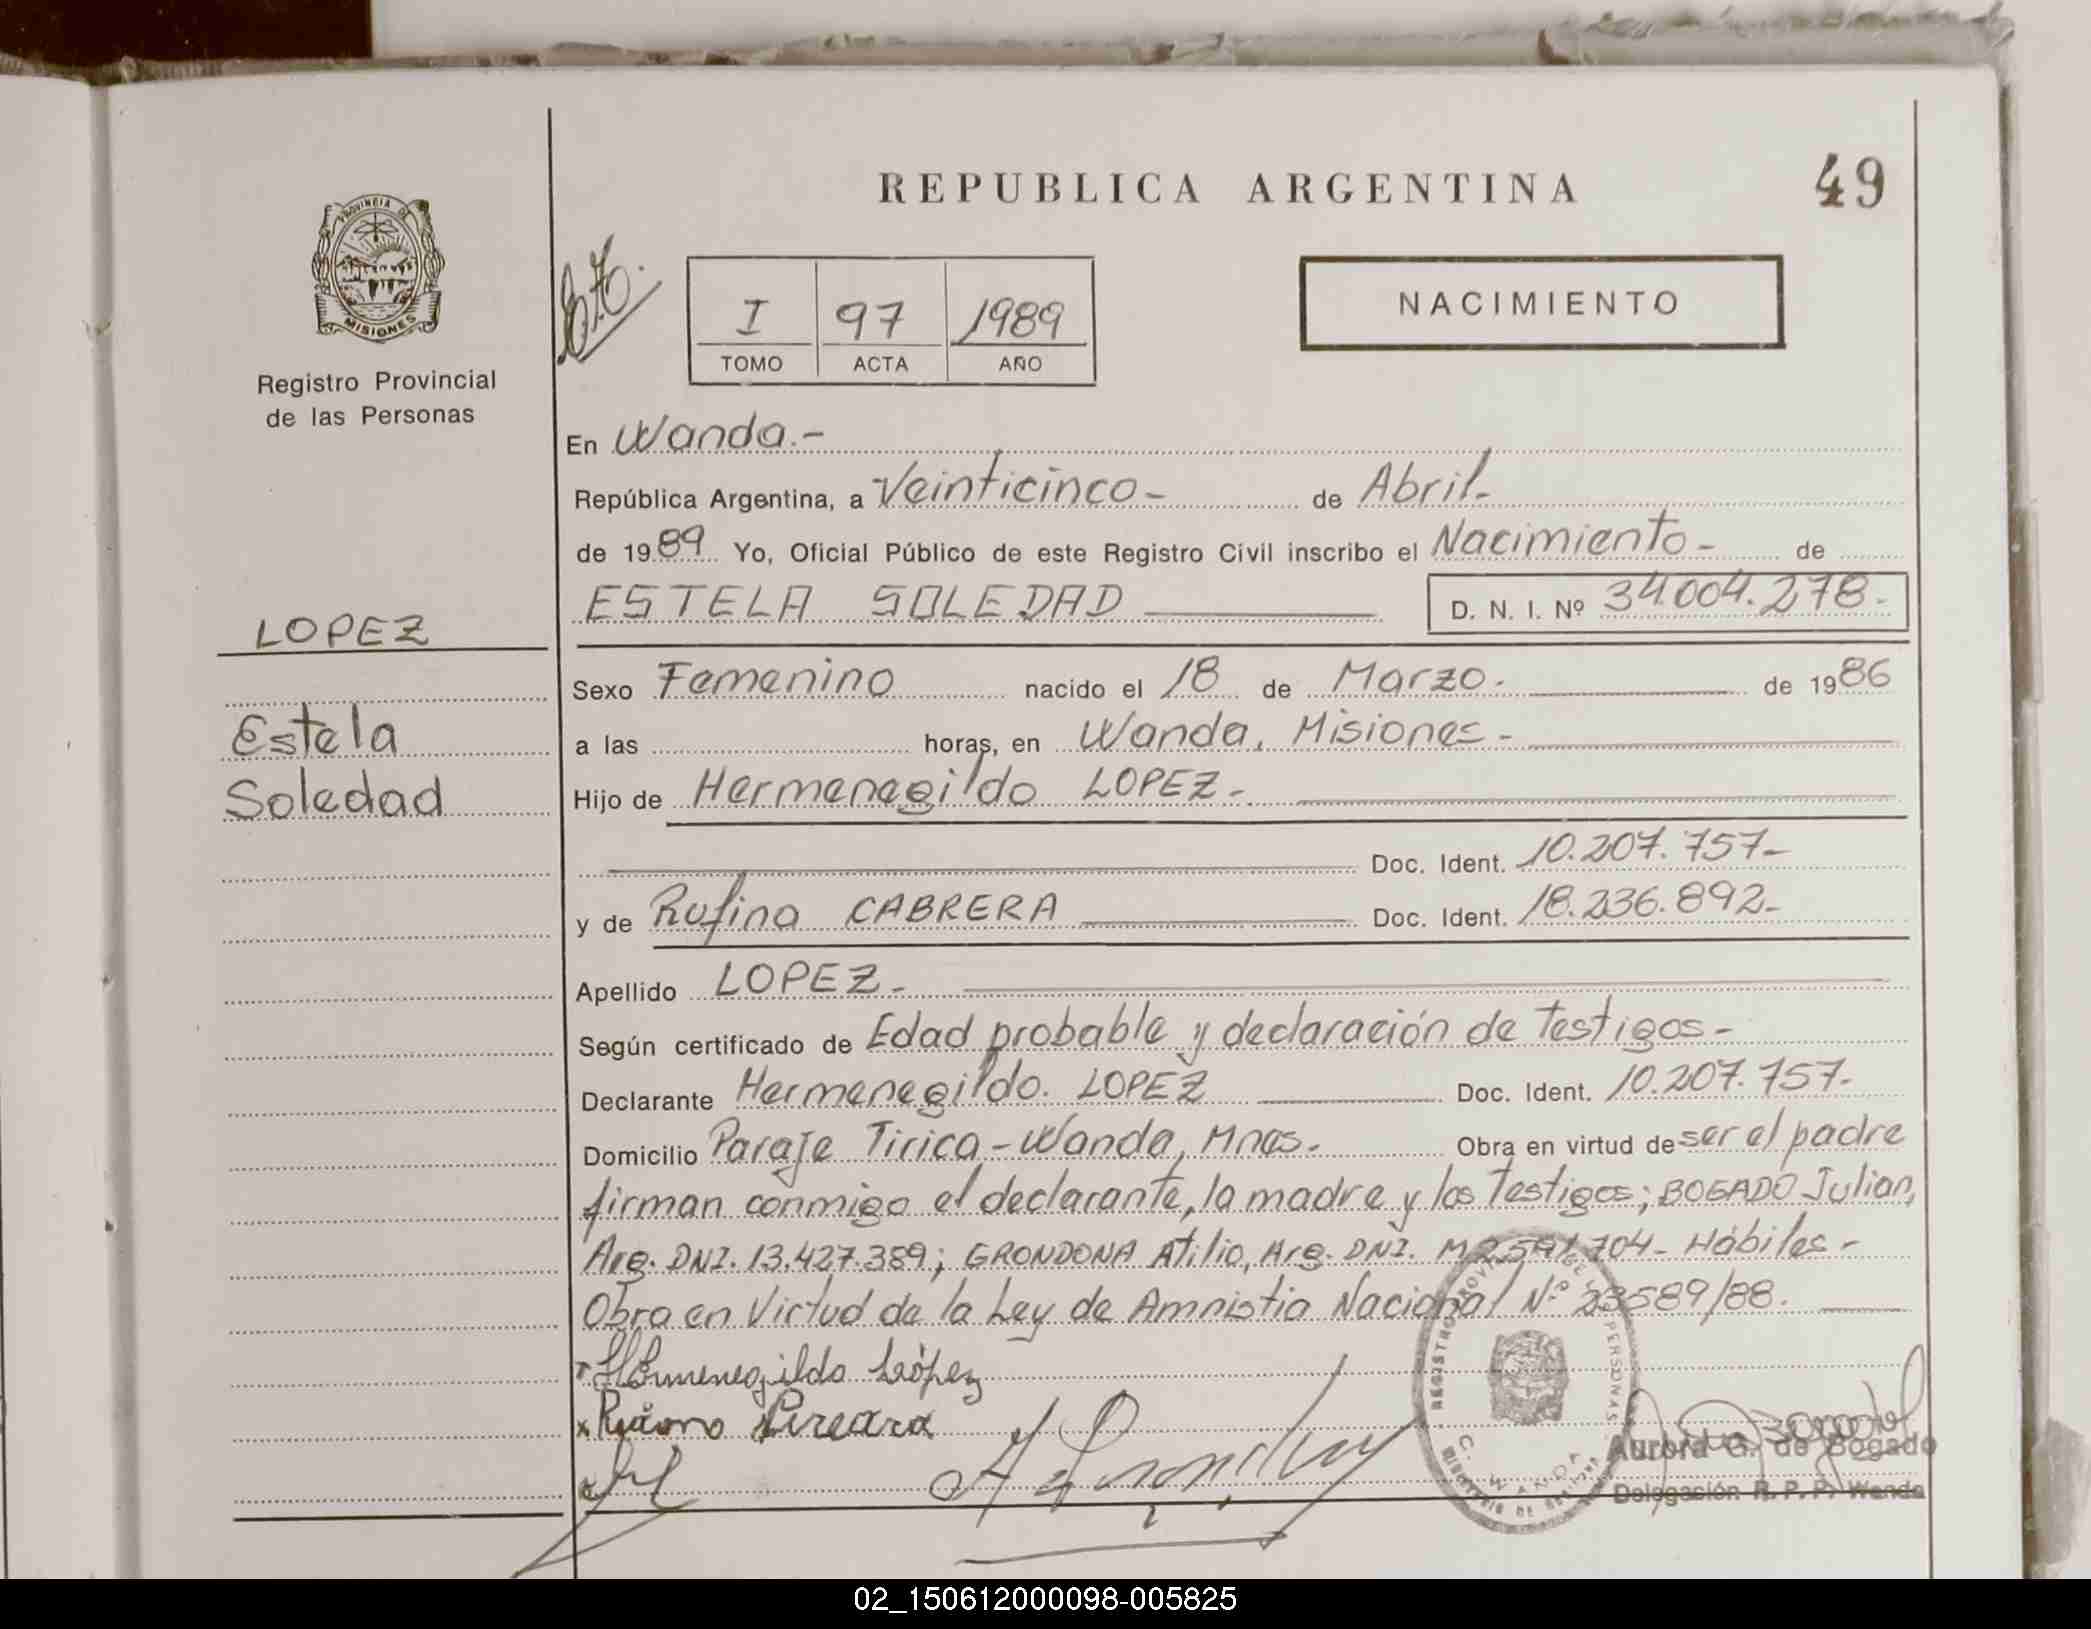 REPUBLICA ARGENTINA
49
PROVINCIA DE MISIONES
Registro Provincial
de las Personas
I 97 1989
TOMO ACTA AÑO
NACIMIENTO
En Wanda.-
República Argentina, a Veinticinco- de Abril-
de 1989 Yo, Oficial Público de este Registro Civil inscribo el Nacimiento- de
ESTELA SOLEDAD
D. N. I. Nº 34.004.278.-
LOPEZ
Estela
Soledad
Sexo Femenino nacido el 18 de Marzo. de 1986
a las horas, en Wanda, Misiones-
Hijo de Hermenegildo LOPEZ-
Doc. Ident. 10.207.757-
y de Rufina CABRERA Doc. Ident. 18.236.892-
Apellido LOPEZ-
Según certificado de Edad probable y declaración de testigos-
Declarante Hermenegildo. LOPEZ Doc. Ident. 10.207.757-
Domicilio Paraje Tirica-Wanda, Mnes. Obra en virtud de ser el padre
firman conmigo el declarante, la madre y los testigos; BOGADO Julian,
Arg. DNI. 13.427.389; GRONDONA Atilio, Arg. DNI. M Hábiles-
Obra en Virtud de la Ley de Amnistia Nacional Nº 23589/88.
Hermenegildo López
Aurora G. de Bogado
Delegación R. P. P. Wanda
02_150612000098-005825